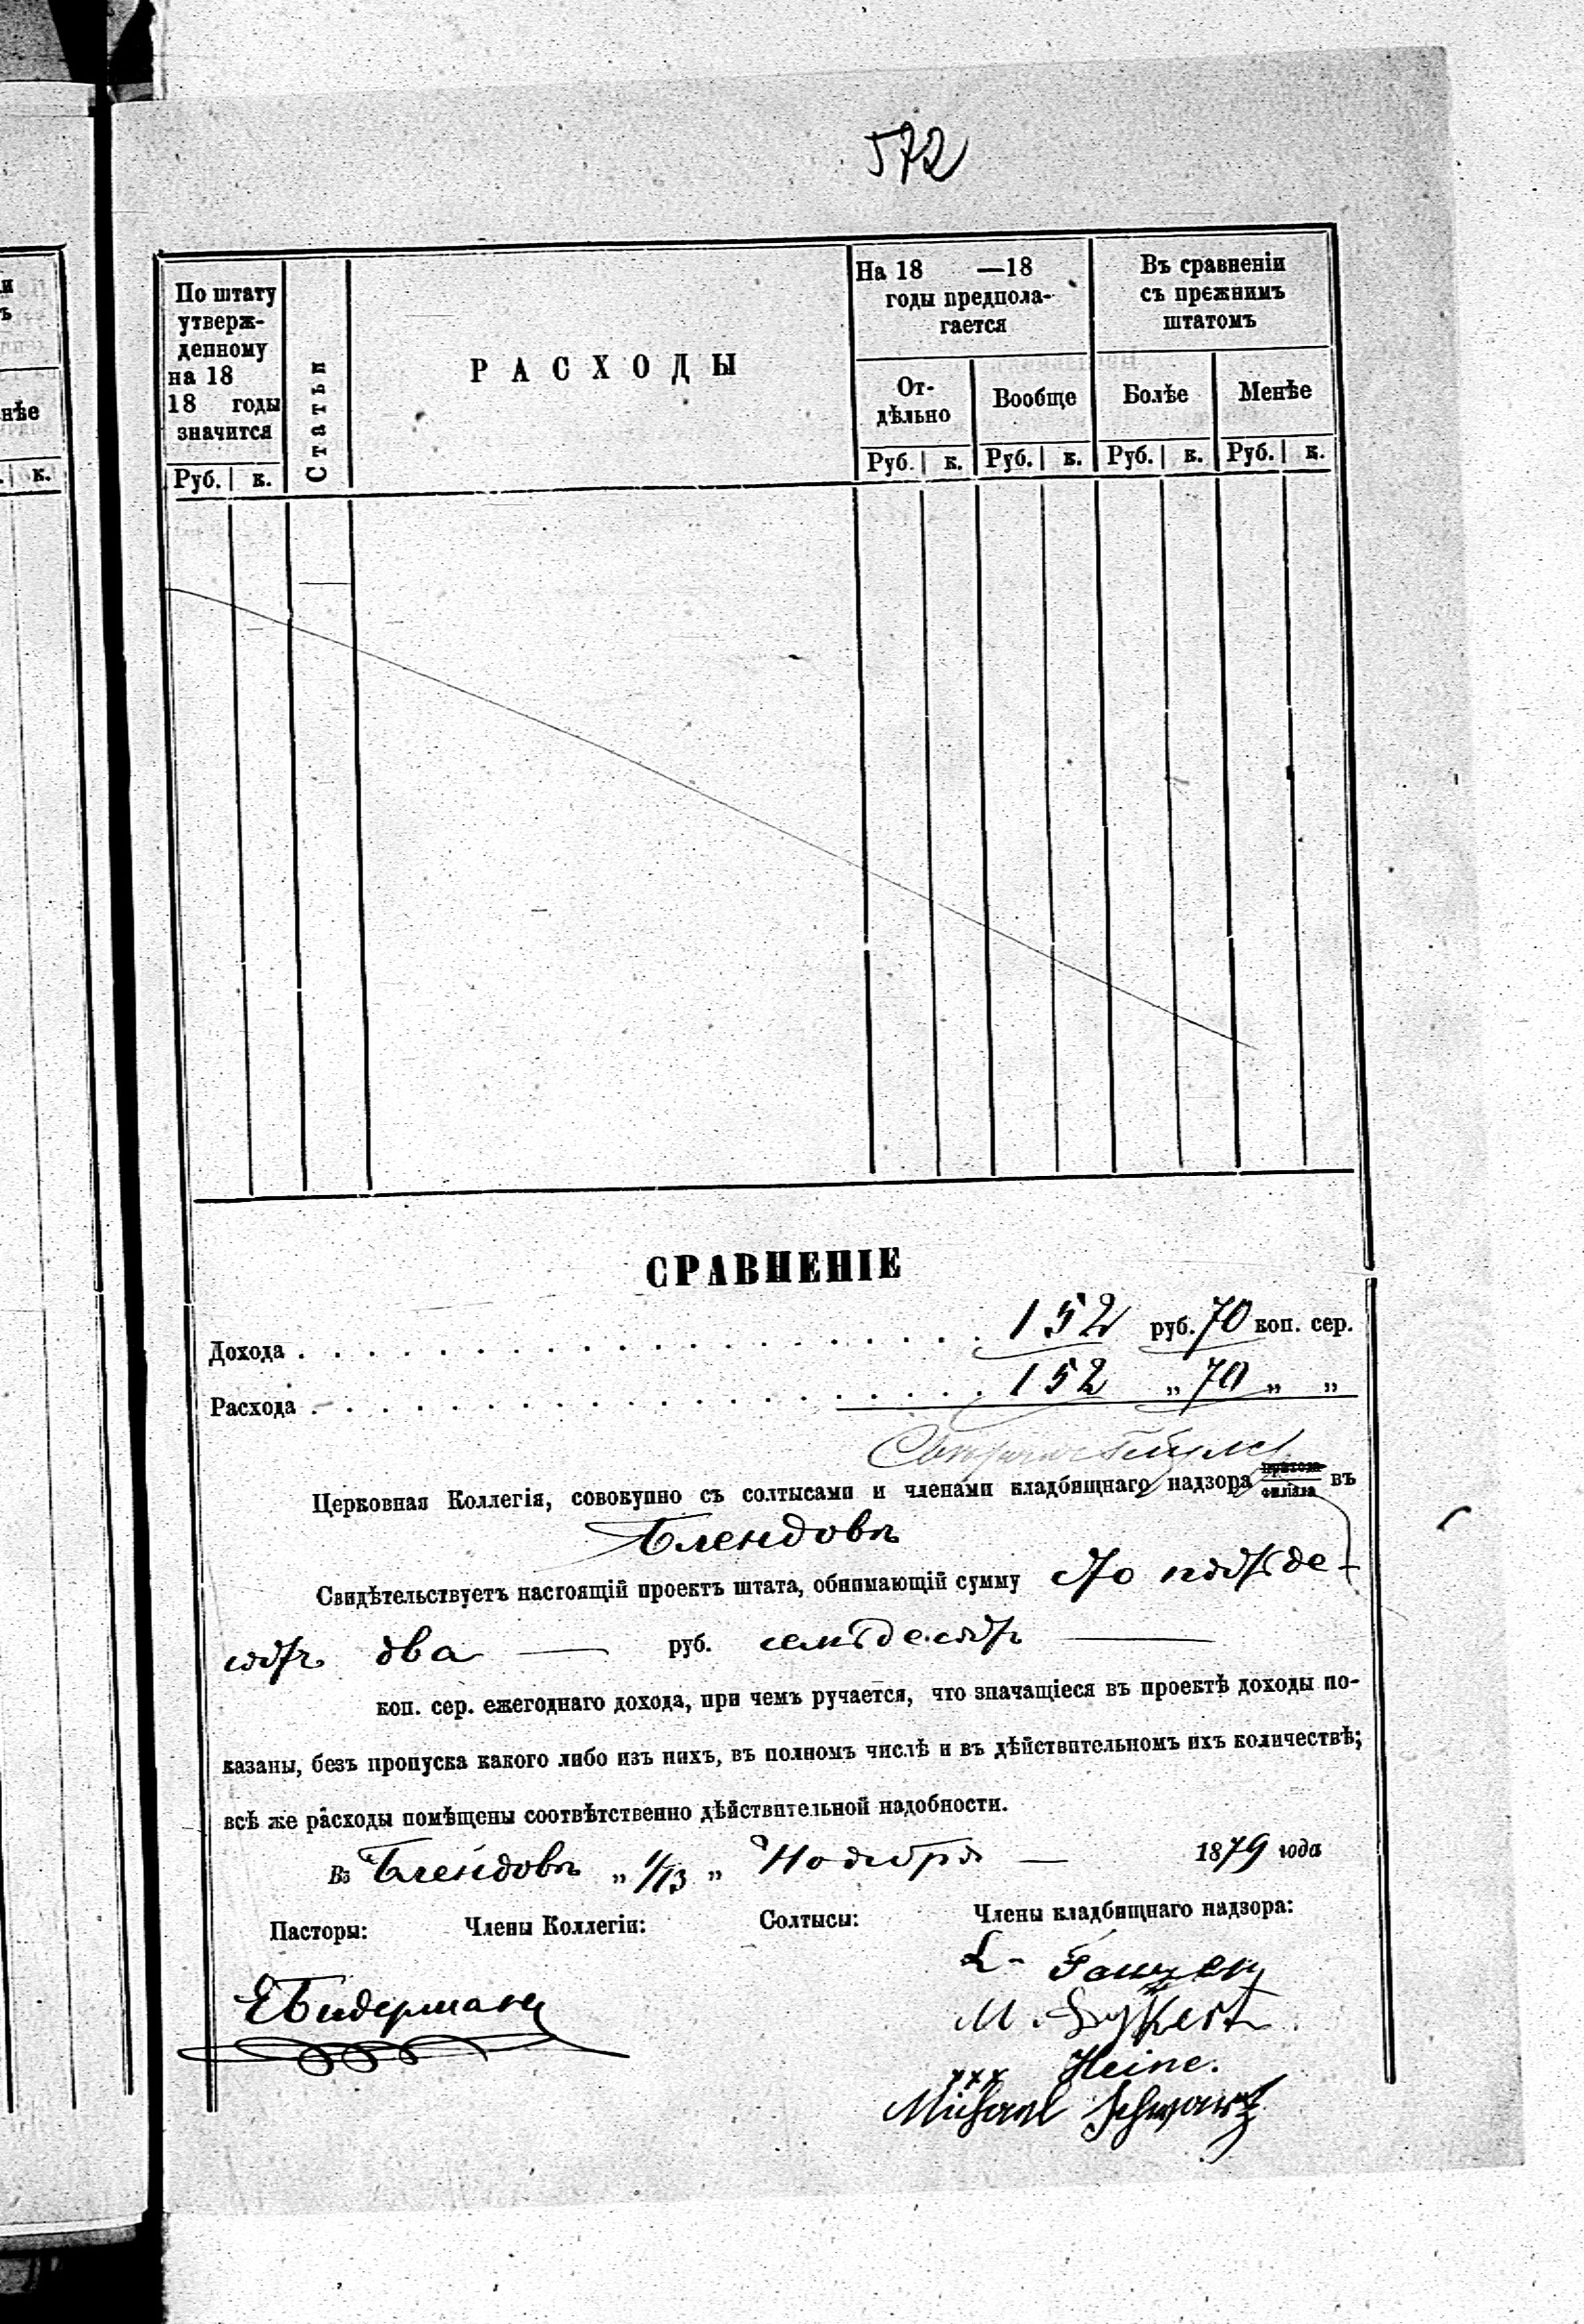 572
По штату
утверж-
денному
на 18
18 годы
значится
Руб. к.
Статьи
РАСХОДЫ
На 18 —18
годы предпола-
гается
От-
дѣльно
Вообще
Руб. к. Руб. к.
Въ сравненіи
съ прежнимъ
штатомъ
Болѣе
Менѣе
Руб. к. Руб. к.
нѣе
к.
СРАВНЕНІЕ
Дохода . . . . . 152 руб. 70 коп. сер.
Расхода . . . . . 152 „ 70 „ „
Церковная Коллегія, совокупно съ солтысами и членами кладбищнаго надзора прихода филіала въ
Блендовъ
Свидѣтельствуетъ настоящій проектъ штата, обнимающій сумму сто пятьде-
сятъ два — руб. семьдесятъ —
коп. сер. ежегоднаго дохода, при чемъ ручается, что значащіеся въ проектѣ доходы по-
казаны, безъ пропуска какого либо изъ нихъ, въ полномъ числѣ и въ дѣйствительномъ ихъ количествѣ;
всѣ же расходы помѣщены соотвѣтственно дѣйствительной надобности.
Въ Блендовъ „ 1/13 „ Ноября — 1879 года
Пасторы: Члены Коллегіи: Солтысы: Члены кладбищнаго надзора:
Е Бидерманъ
L.
M.
xxx Heine.
Michael Schwartz